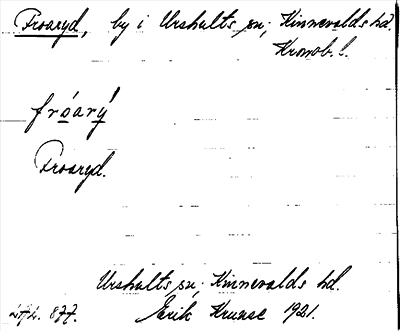 Froaryd, by i Urshults sn; Kinnevalds hd.
Kronob. l.
fróarý
Froaryd.
Urshults sn; Kinnevalds hd.
Erik Kruuse 1921.